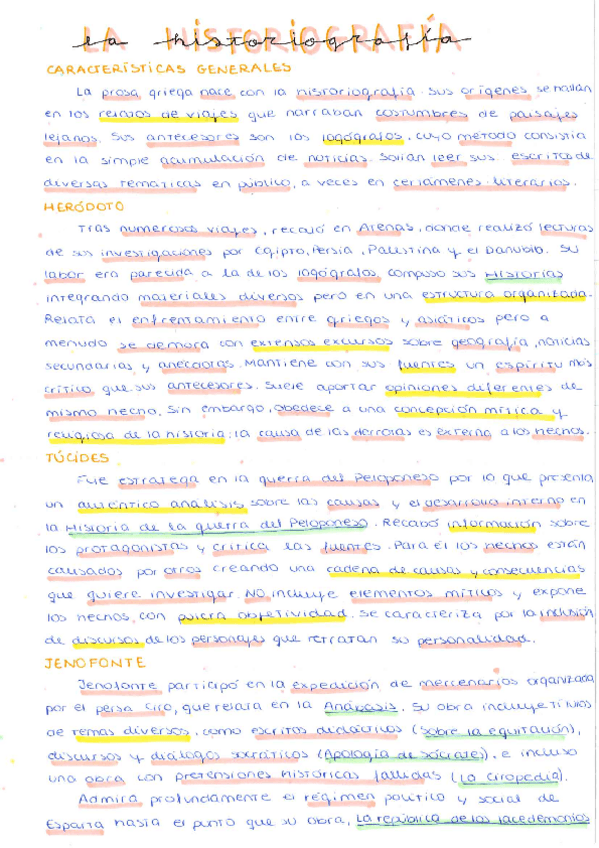 LA HISTORIOGRAFÍA
CARACTERÍSTICAS GENERALES
La prosa griega nace con la historiografía. Sus orígenes se hallan
en los relatos de viajes que narraban costumbres de paisajes
lejanos. Sus antecesores son los logógrafos, cuyo método consistía
en la simple acumulación de noticias. Solían leer sus escritos de
diversas temáticas en público, a veces en certámenes literarios.
HERÓDOTO
Tras numerosos viajes, recayó en Atenas, donde realizó lecturas
de sus investigaciones por Egipto, Persia, Palestina y el Danubio. Su
labor era parecida a la de los logógrafos compuso sus Historias
integrando materiales diversos pero en una estructura organizada.
Relata el enfrentamiento entre griegos y asiáticos pero a
menudo se demora con extensos excursos sobre geografía, noticias
secundarias y anécdotas. Mantiene con sus fuentes un espíritu más
crítico que sus antecesores. Suele aportar opiniones diferentes de
mismo hecho. Sin embargo, obedece a una concepción mítica y
religiosa de la historia: la causa de las derrotas es externa a los hechos.
TÚCIDES
Fue estratega en la guerra del Peloponeso por lo que presenta
un auténtico análisis sobre las causas y el desarrollo interno en
la Historia de la guerra del Peloponeso. Recabó información sobre
los protagonistas y critica las fuentes. Para él los hechos están
causados por otros creando una cadena de causas y consecuencias
que quiere investigar. No incluye elementos míticos y expone
los hechos con pulcra objetividad. Se caracteriza por la inclusión
de discursos de los personajes que retratan su personalidad.
JENOFONTE
Jenofonte participó en la expedición de mercenarios organizada
por el persa Ciro, que relata en la Anábasis. Su obra incluye títulos
de temas diversos, como escritos didácticos (Sobre la equitación),
discursos y diálogos socráticos (Apología de Sócrates), e incluso
una obra con pretensiones históricas fallidas (La Ciropedia).
Admira profundamente el régimen político y social de
Esparta hasta el punto que su obra, La república de los lacedemonios